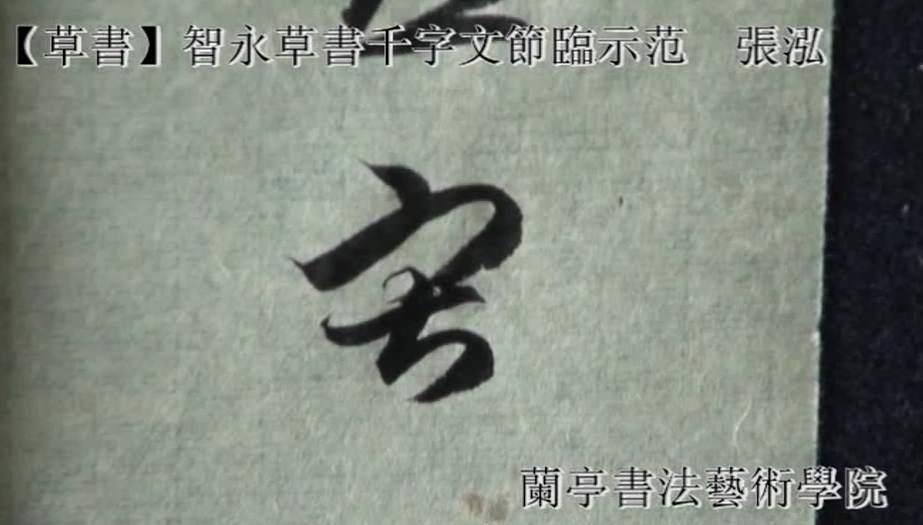 【草書】智永草書千字文節臨示范　張泓
蘭亭書法藝術學院